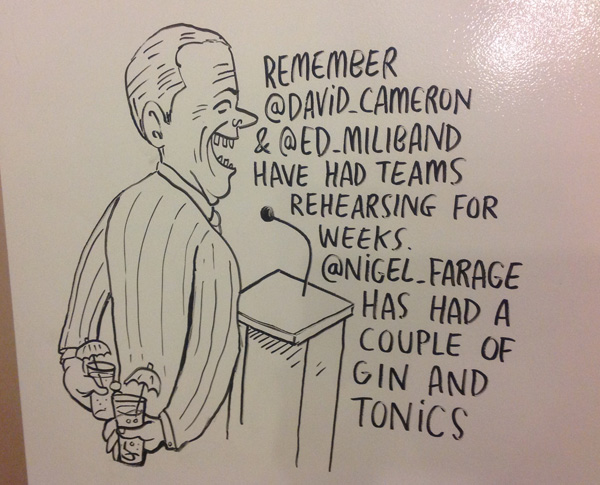 REMEMBER
@DAVID_CAMERON
& @ED_MILIBAND
HAVE HAD TEAMS
REHEARSING FOR
WEEKS.
@NIGEL_FARAGE
HAS HAD A
COUPLE OF
GIN AND
TONICS